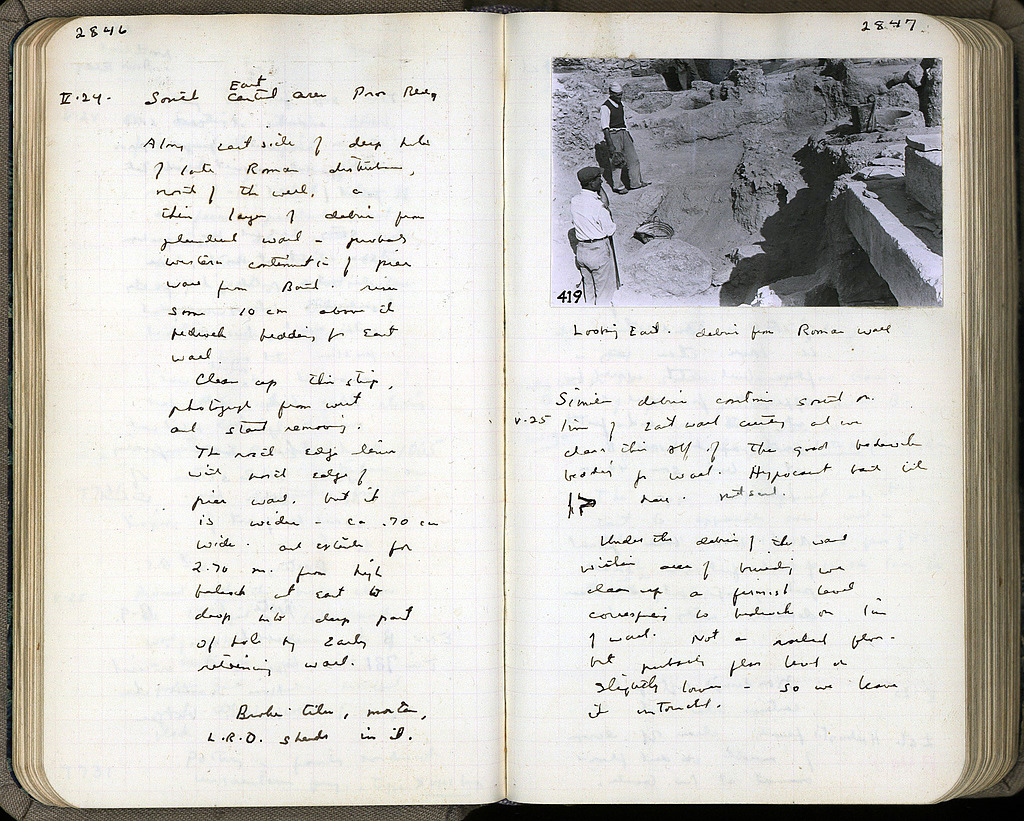 2846
IV.24. South East
Central area
Along east side of deep hole
of late Roman disturbance,
north of the wall, a
thin layer of debris from
plundered wall - probably
western continuation of pier
wall from East. rises
some 10 cm above it
bedrock bedding for East
wall.
Clean up this strip,
photograph from west
and start removing.
The north edge
with north edge of
pier wall. but it
is wider - ca .70 cm
wide. and extends for
2.70 m. from high
at East to
drop into deep part
of hole by Early
retaining wall.
Broken tiles, mortar,
L.R.D. sherds in it.
2847
419
Looking East. debris from Roman wall
Similar debris continues south on
V.25
line of East wall and we
clean this off of the good bedrock
bedding for wall. Hypocaust
here.
Under the debris of the wall
within area of building we
clean up a level
corresponding to bedrock on line
of wall. Not a floor.
but probably floor level or
slightly lower - so we leave
it untouched.